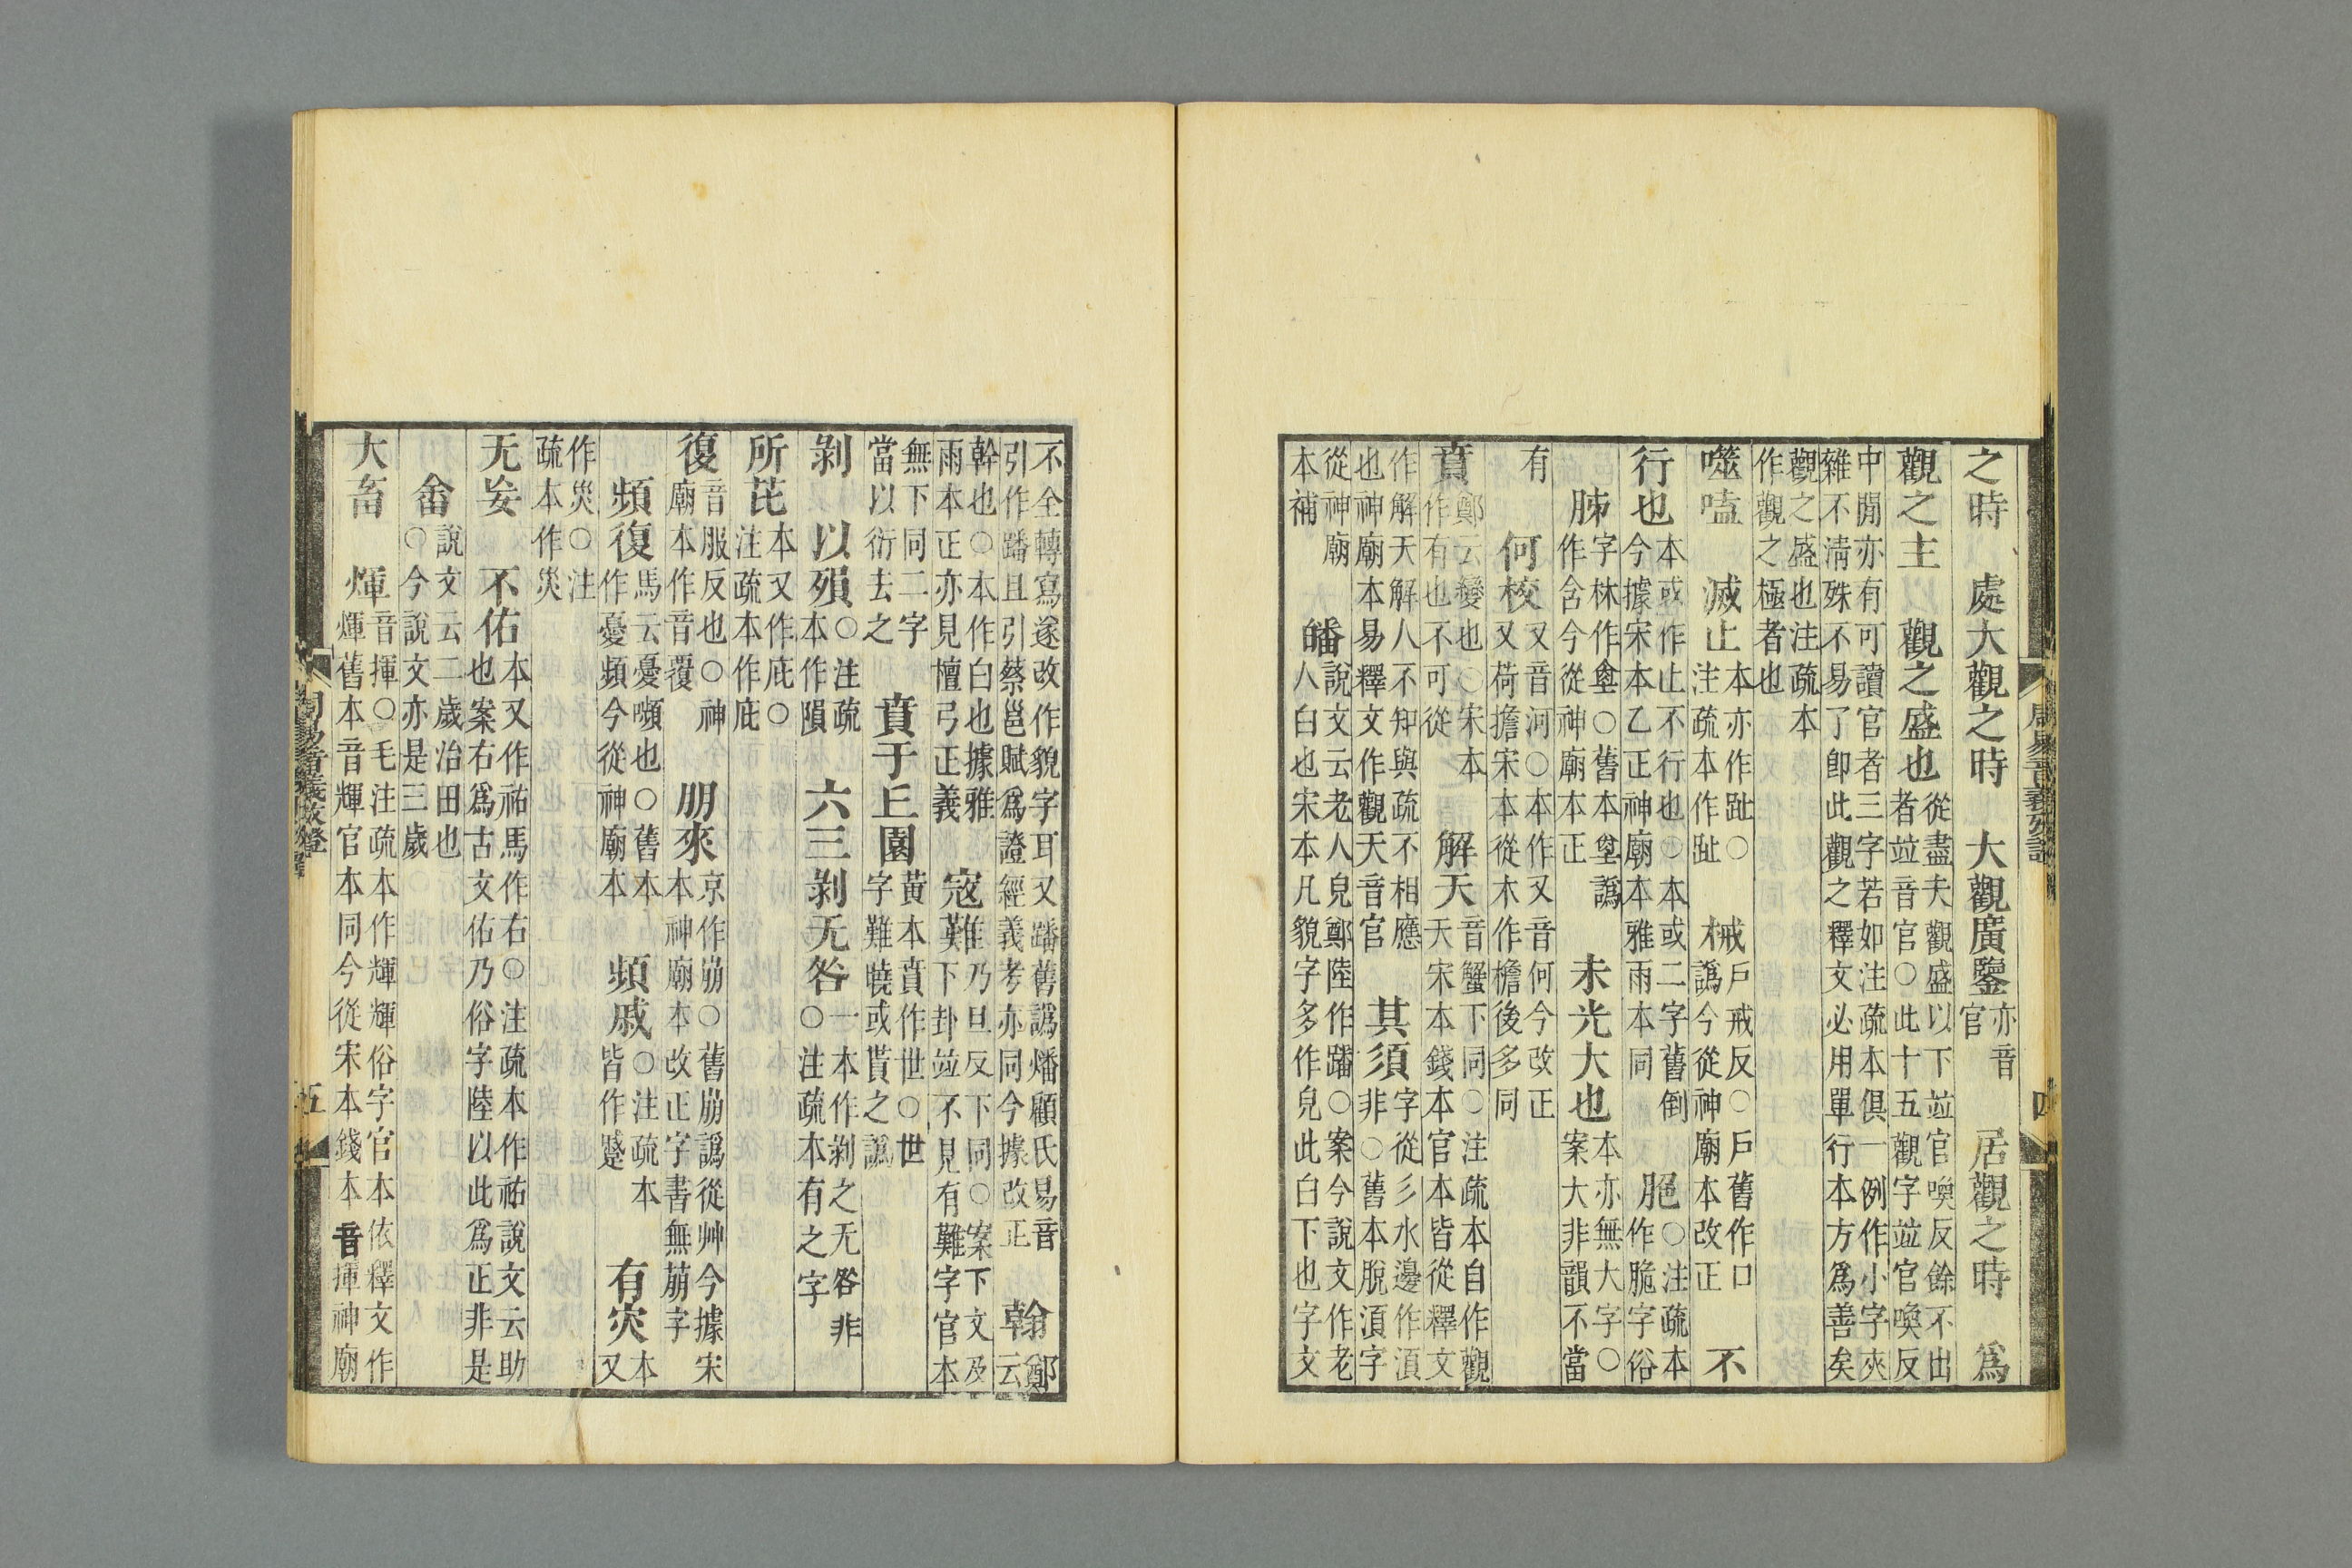 之時　處大觀之時　大觀廣鑒亦音官　居觀之時　爲
觀之主　觀之盛也從盡夫觀盛以下竝官喚反餘不出者竝音官○此十五觀字竝官喚反
中閒亦有可讀官者三字若如注疏本俱一例作小字夾雜不淸殊不易了卽此觀之釋文必用單行本方爲善矣
觀之盛也注疏本作觀之極者也
噬嗑　滅止本亦作趾○注疏本作趾　械戶戒反○戶舊作口譌今從神廟本改正　不
行也本或作止不行也○本或二字舊倒今據宋本乙正神廟本雅雨本同　脃○注疏本作脆字俗
胏字林作𦙶○舊本𡊅譌作含今從神廟本正　未光大也本亦無大字○案大非韻不當
有　何校又音河○本作又音何今改正又荷擔宋本從木作檐後多同
賁鄭云變也○宋本作有也不可從　解天音蟹下同○注疏本自作觀天宋本錢本官本皆從釋文
作解天解人不知與疏不相應也神廟本易釋文作觀天音官　其須字從彡水邊作湏非○舊本脫湏字
從神廟本補　皤說文云老人皃鄭陸作蹯○案今說文作老人白也宋本凡貌字多作皃此白下也字文
不全轉寫遂改作貌字耳又蹯舊譌燔顧氏易音引作蹯且引蔡邕賦爲證經義考亦同今據改正　翰鄭云
幹也○本作白也據雅雨本正亦見檀弓正義　寇難乃旦反下同○案下文及下卦竝不見有難字官本
無下同二字當以衍去之　賁于丘園黃本賁作世○世字難曉或貰之譌
剝　以殞○注疏本作隕　六三剝无咎一本作剝之无咎非○注疏本有之字
所芘本又作庇○注疏本作庇
復音服反也○神廟本作音覆　朋來京作崩○舊崩譌從艸今據宋本神廟本改正字書無萠字
頻復馬云憂頻也○舊本作憂頻今從神廟本　頻戚○注疏本皆作蹙　有灾本又
作災○注疏本作災
无妄　不佑本又作祐馬作右○注疏本作祐說文云助也案右爲古文佑乃俗字陸以此爲正非是
畬說文云二歲治田也○今說文亦是三歲
大畜　煇音揮○毛注疏本作輝輝俗字官本依釋文作煇舊本音輝官本同今從宋本錢本音揮神廟
五
四